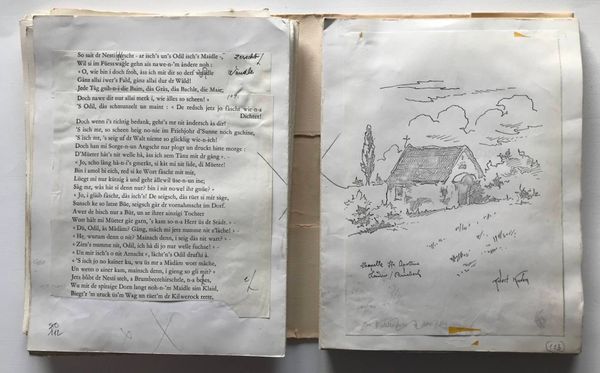 So sait dr Nesti
scht - ar isch's un's Odil isch's Maidle -,
Wil si im Füesswägle gehn
as nawe-n-'m ändere noh :
« O, wie bin i doch froh, ass ich mit dir so derf
Gänz allai iwer's Fald, gänz allai dur dr Wàld!
Jede Täg gsih-n-i die Baim, das Gräs, das Bachle, die Maie,
Doch nawe dir nur allai merk i, wie àlles so scheen! »
'S Odil, das schmunzelt un maint : « De redsch jetz jo fàscht wie-n-a
Dichter!
Doch wenn i's richtig bedank, geht's mr nit ànderscht às dir!
'S isch mr, so scheen heig no-nie im Friehjohr d'Sunne noch gschine,
'S isch mr, 's seig uf dr Walt nieme so glicklig wie-n-ich!
Doch han mi Sorge-n-un Angscht nur plogt un druckt hitte morge :
D'Müeter hàt's nit welle hà, ass ich zem Tànz mit dr gàng ». -
« Jo, scho làng hà-n-i's gmerkt, si kàt mi nit lide, di Müeter!
Bin i amol bi eich, red si ke Wort fàscht mit mir,
Lüegt mi nur kützig à und geht àllewil üse-n-un ine;
Sàg mr, was hàt si denn nur? bin i nit nowel ihr gnüe? »
- « Jo, i glàib fàscht, das isch's! De seigsch, das rüet si mir sàge,
Sunsch ke so latze Büe, seigsch gàr dr vornahmscht im Dorf.
A wer de bisch nur a Bür, un ar ihrer ainzigi Tochter
Wott hàlt mi Müeter gàr garn, 's kam so-n-a Herr üs de Stàdt. » -
« Dü, Odil, às Màdàm? Gàng, màch mi jetz numme nit z'làche! » -
« He, worum denn o nit? Mainsch denn, i seig das nit wart? » -
« Zirn's numme nit, Odil, ich hà di jo nur welle fuchse! » -
« Un mir isch's o nit Arnscht », làcht'n's Odil drufhi à.
'S isch jo no keiner ku, wu üs mr a Màdàm wott màche,
Un wenn o ainer kam, mainsch denn, i gieng so gli mit? »
Jetz blibt dr Nesti steh, a Brumbeerehirschtle, n-a
Wu mit de spitzige Dorn làngt noh-n-'m Maidle sim Klaid,
Biegt'r 'm uruck üs'm Wag un rüet'm dr Kilwerock rette,
112
Robert Kuven